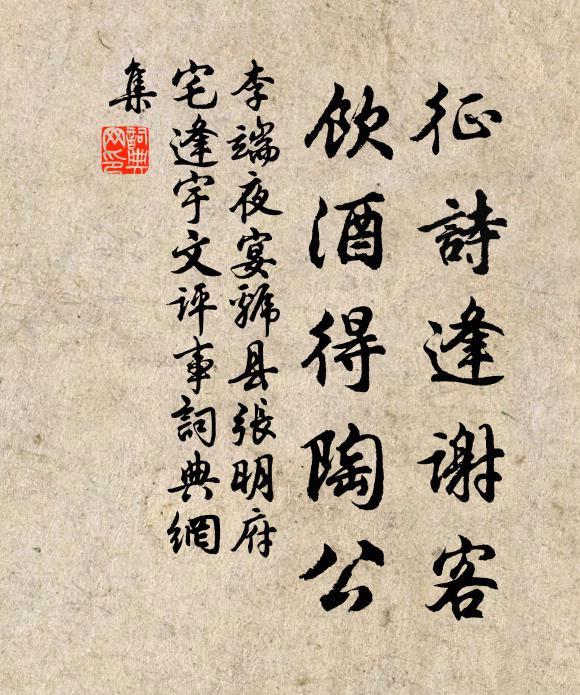 征詩逢謝客
飲酒得陶公
李端夜宴虢县張明府
宅逢宇文评事詞典網
集
詞典网印